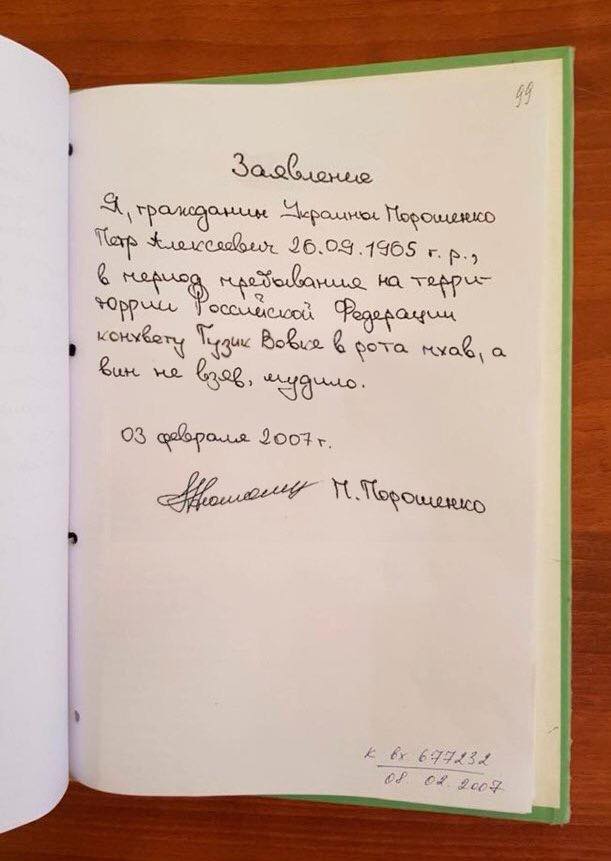 99
Заявление
Я, гражданин Украины Порошенко
Петр Алексеевич 26.09.1965 г. р.,
в период пребывание на терри-
торрии Российской Федерации
конхвету Гузик Вовке в рота пхав, а
вин не взяв, мудило.
03 февраля 2007 г.
П. Порошенко
к вх 677232
08. 02. 2007